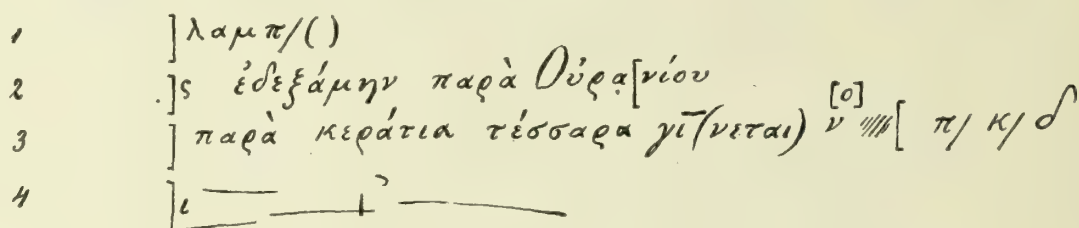 1 ]λαμπ/( )
2 .]ς ἐδεξάμην παρὰ Οὐρα̣[νίου
3 ] παρὰ κεράτια τέσσαρα γί(νεται) ν[ο] [ π/ κ/ δ
4 ]ι